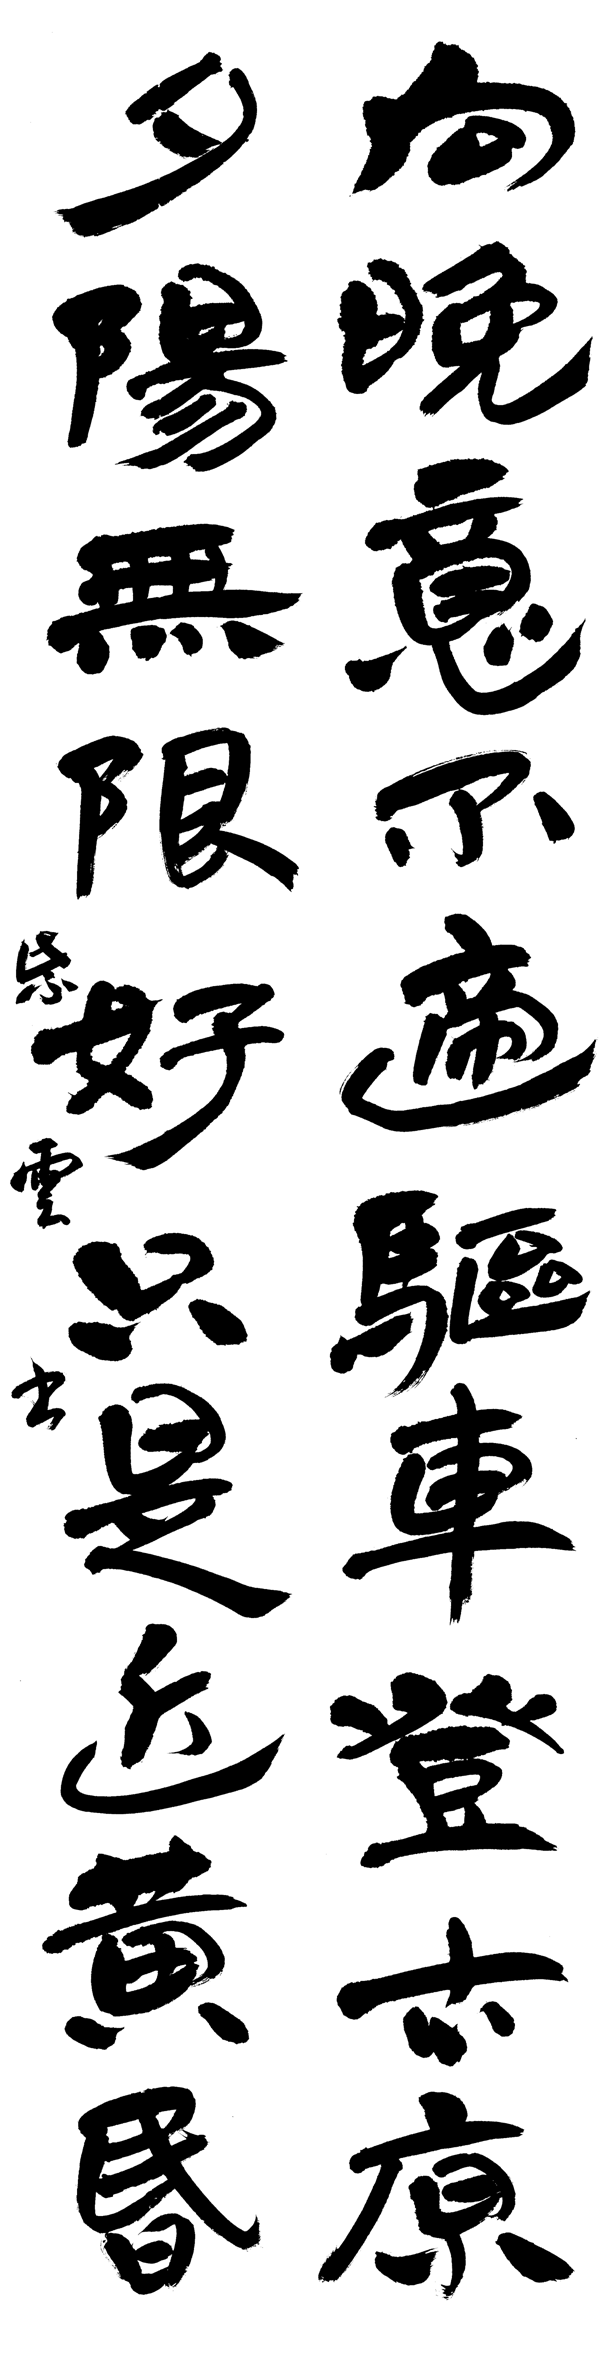 向晚意不適驅車登古原
夕陽無限好只是近黃昏
紫雲書